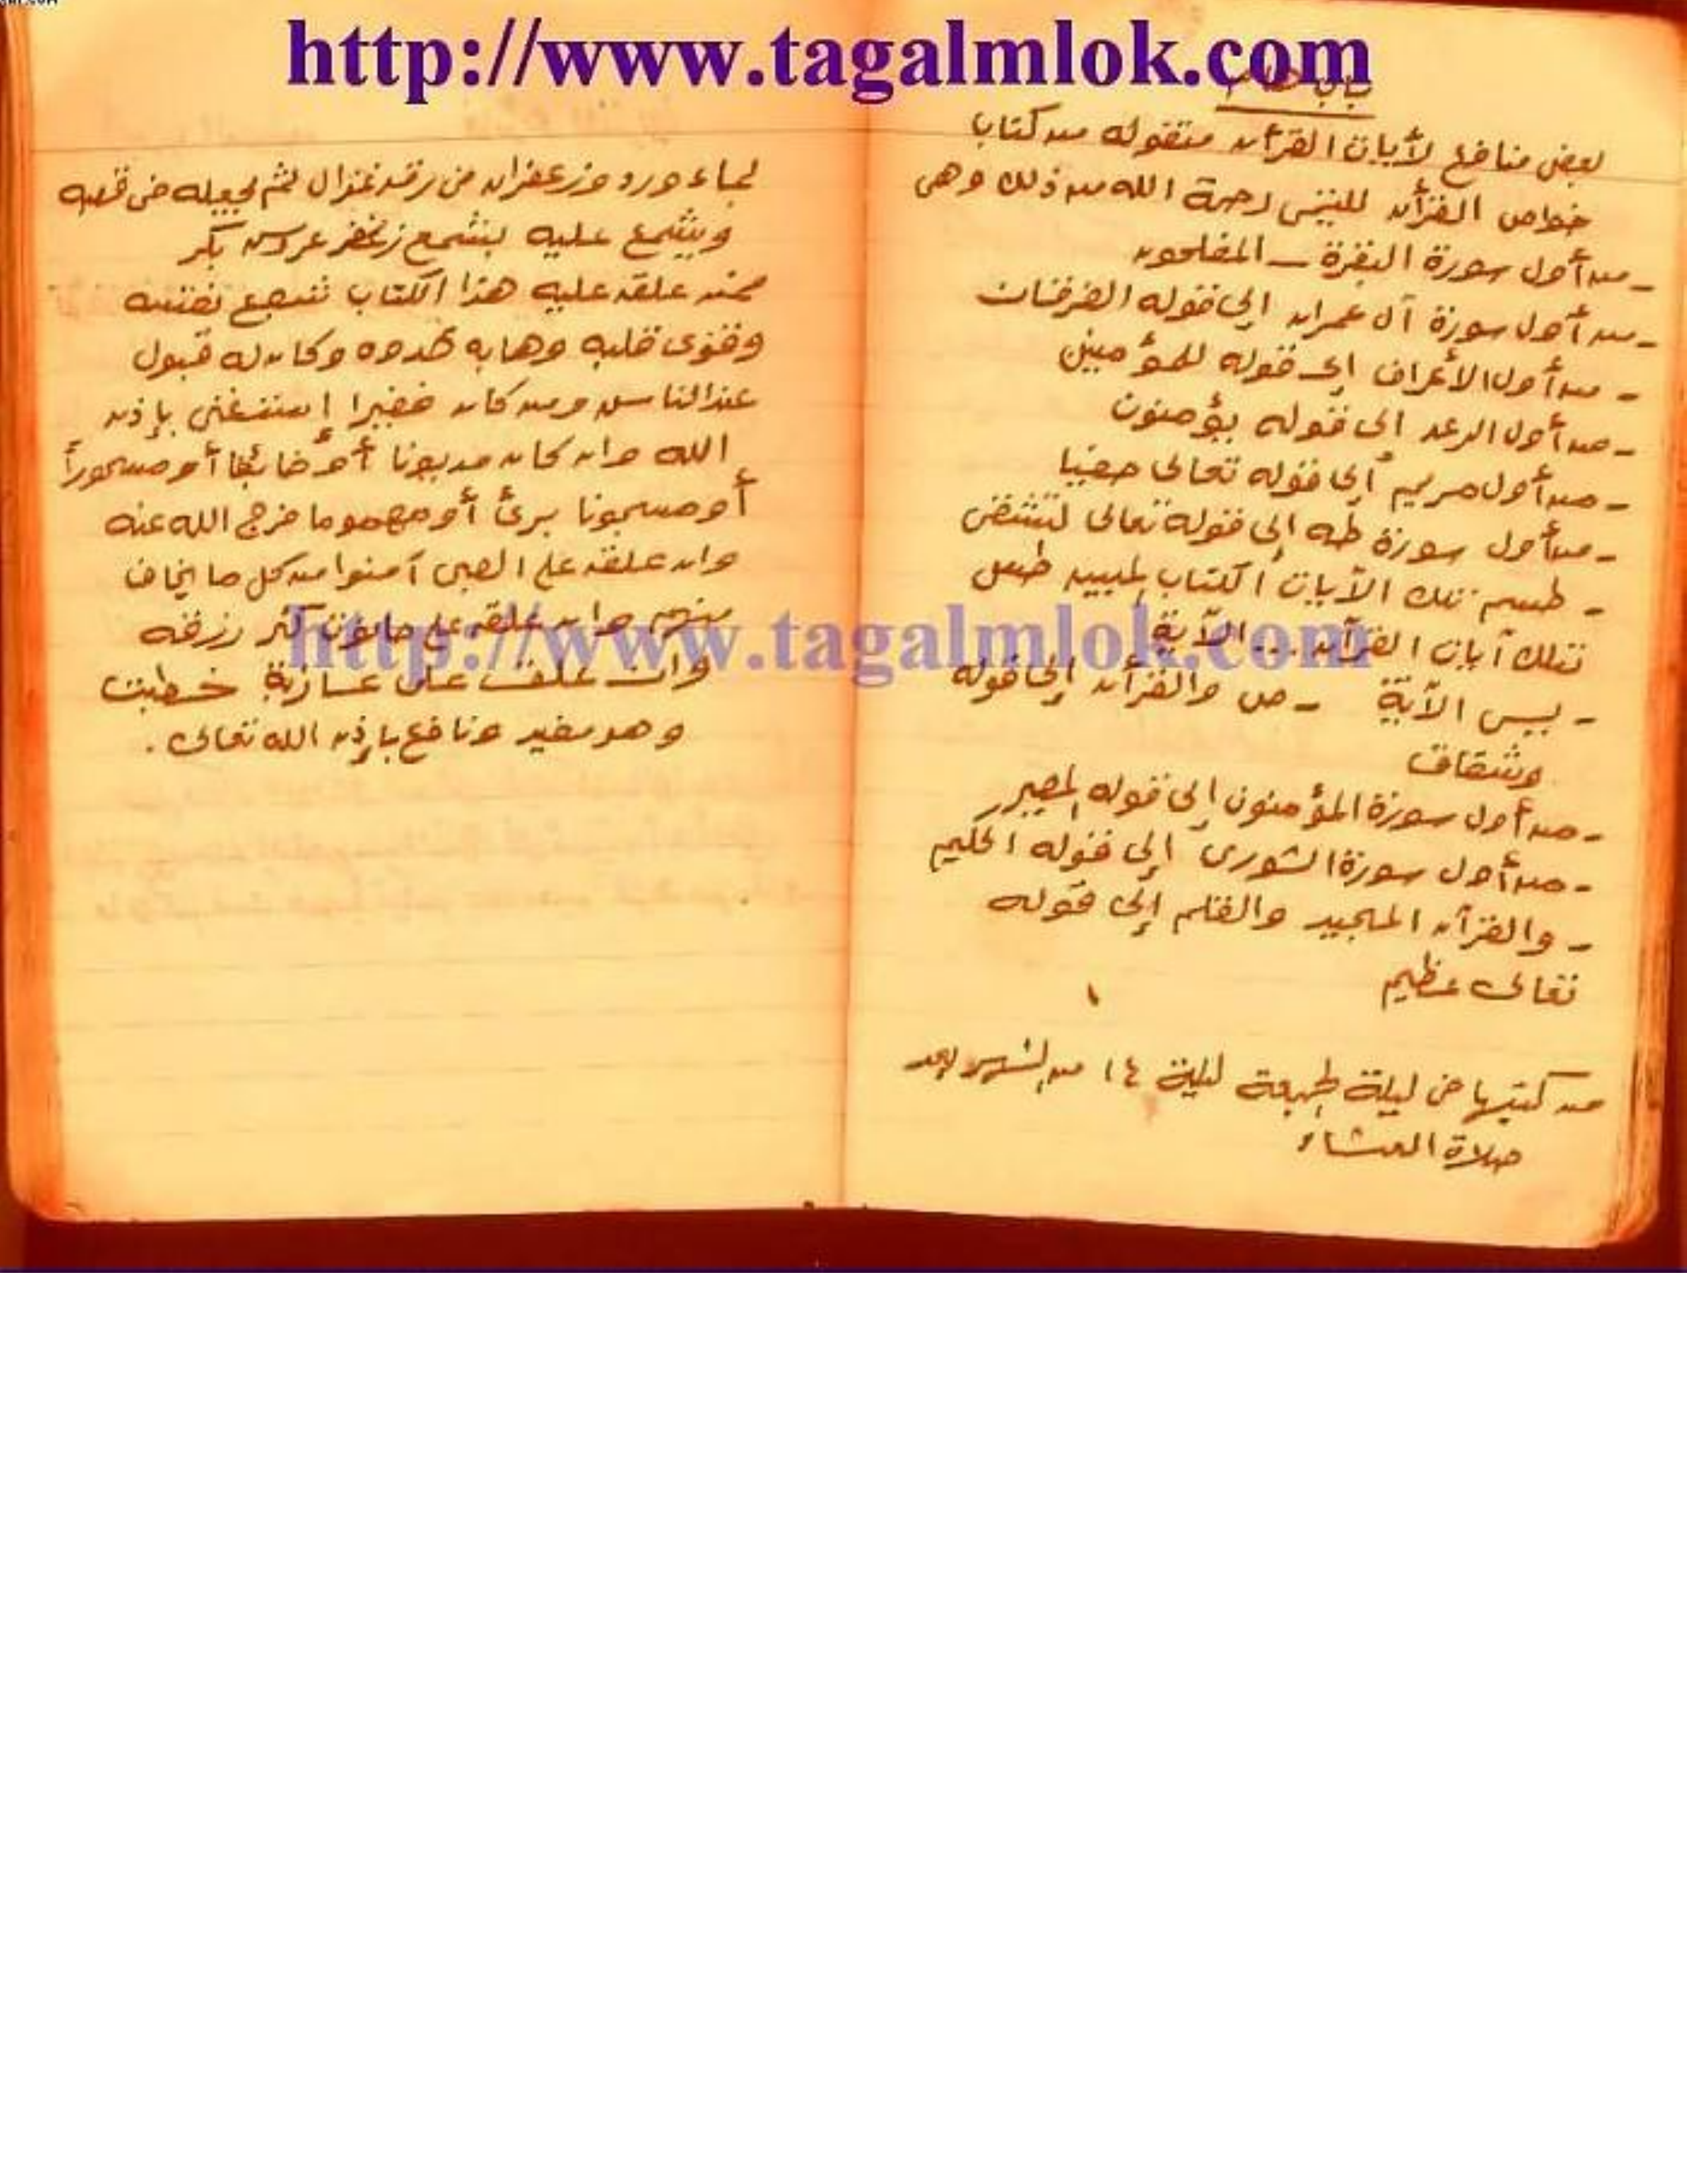 http://www.tagalmlok.com
باب هام
بعض منافع لأيات القرأن منقوله من كتاب
خواص القرأن لليتيمى رحمة الله من ذلك وهى
- من أول سورة البقرة - المفلحون
- من أول سورة آل عمران إلى قوله الفرقان
- من أول الأعراف إلى قوله للمؤمنين
- من أول الرعد إلى قوله يؤمنون
- من أول مريم إلى قوله تعالى حفيا
- من أول سورة طه إلى قوله تعالى لتشقى
- طسم تلك الآيات الكتاب المبين طس
تلك آيات القرآن ... الآية
- يس الآية - ص والقرأن إلى قوله
وشقاق
- من أول سورة المؤمنون إلى قوله المصير
- من أول سورة الشورى إلى قوله الحكيم
- والقرآن المجيد والقلم إلى قوله
تعالى عظيم
من كتبها فى ليلة الجمعة ليلة ١٤ من الشهر بعد
صلاة العشاء
بماء ورد وزعفران فى رق غزال ثم يجعله فى قصبه
ويشمع عليه بشمع عروس بكر
فمن علقه عليه هذا الكتاب تشجع نفسه
وقوى قلبه وهابه عدوه وكان له قبول
عند الناس ومن كان فقيرا إستغنى بإذن
الله وان كان مديونا أو خائفا أو مسحوراً
أو مسجونا برئ أو مهموما فرج الله عنه
وان علقه على الصبى آمنوا من كل ما يخاف
منهم وان علقه على حانوت كثر رزقه
وان علقت على عازبة خطبت
وهو مفيد ونافع بإذن الله تعالى .
http://www.tagalmlok.com